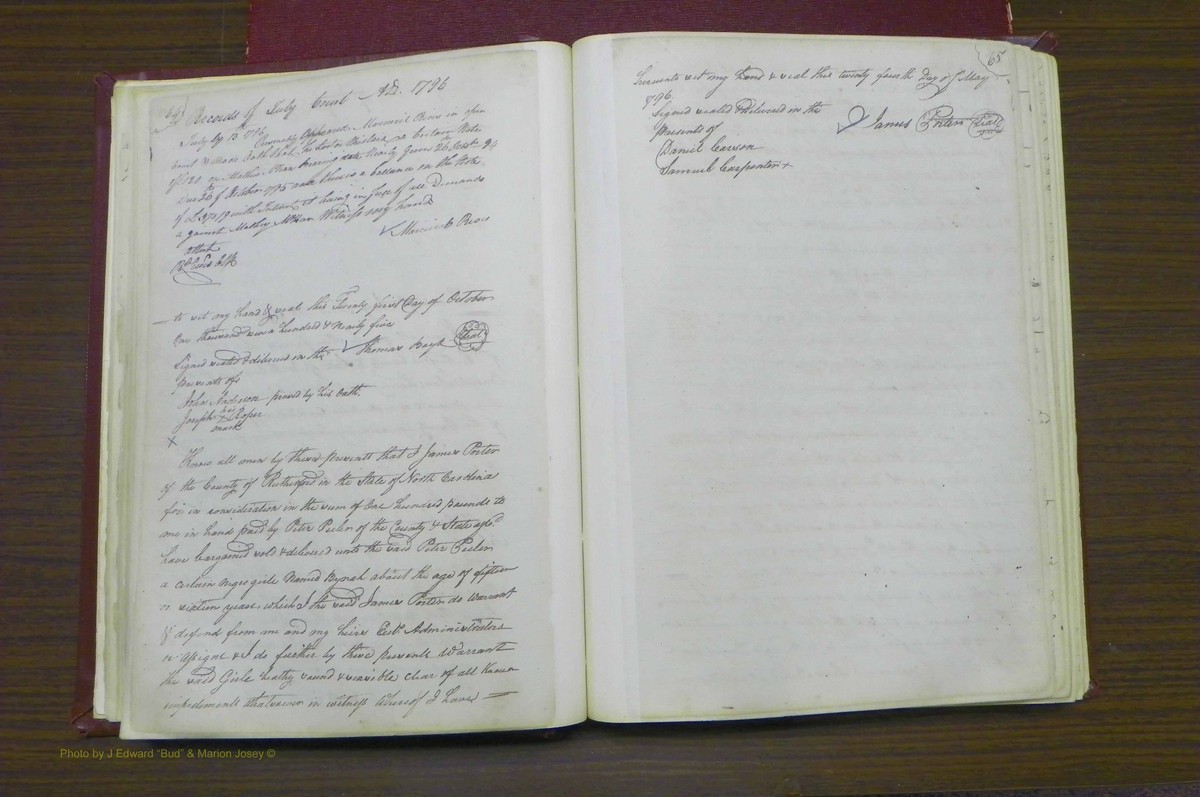 64
Records of July Court A.D. 1796
July by 13th 1796 Personally Appeared Maverick Rows in open
Court & Made Oath that
of £120 on Mathew Mean bearing date Nearly Given 26 Octobr 94
Due 26th of October 1795 and theres a ballance on the Note
of with Intrest it being in full of all Demands
a gainst Mathew Mean Witness my hand
Maverick Rows
attest
Rd Lewis Clk
to set my hand & seal this Twenty first Day of October
One thousand seven hundred & Ninety five
Signed sealed & delivered in the Thomas Boyle Seal
presents of
John Anderson proved by his Oath.
Joseph his X Roper
mark
X
Know all men by these presents that I James Porter
of the County of Rutherford in the State of North Carolina
for in consideration in the sum of One hundred pounds to
me in hand paid by Peter Peeler of the County & State afsd
have bargained sold & delivered unto the said Peter Peeler
a certain negro girle Named Rynah about the age of fifteen
or sixteen years which I the said James Porter do warrant
& defend from me and my heirs Exrs Administrators
or assigns & I do further by these presents Warrant
the said Girle healthy sound & sensible clear of all Known
impediments whatsoever in witness Whereof I have
65
hereunto set my hand & seal this twenty fourth Day of May
1796.
Signed sealed & delivered in the
presents of
James Porter Seal
Daniel Cawson
Samuel Carpenter +
Photo by J Edward "Bud" & Marion Josey ©